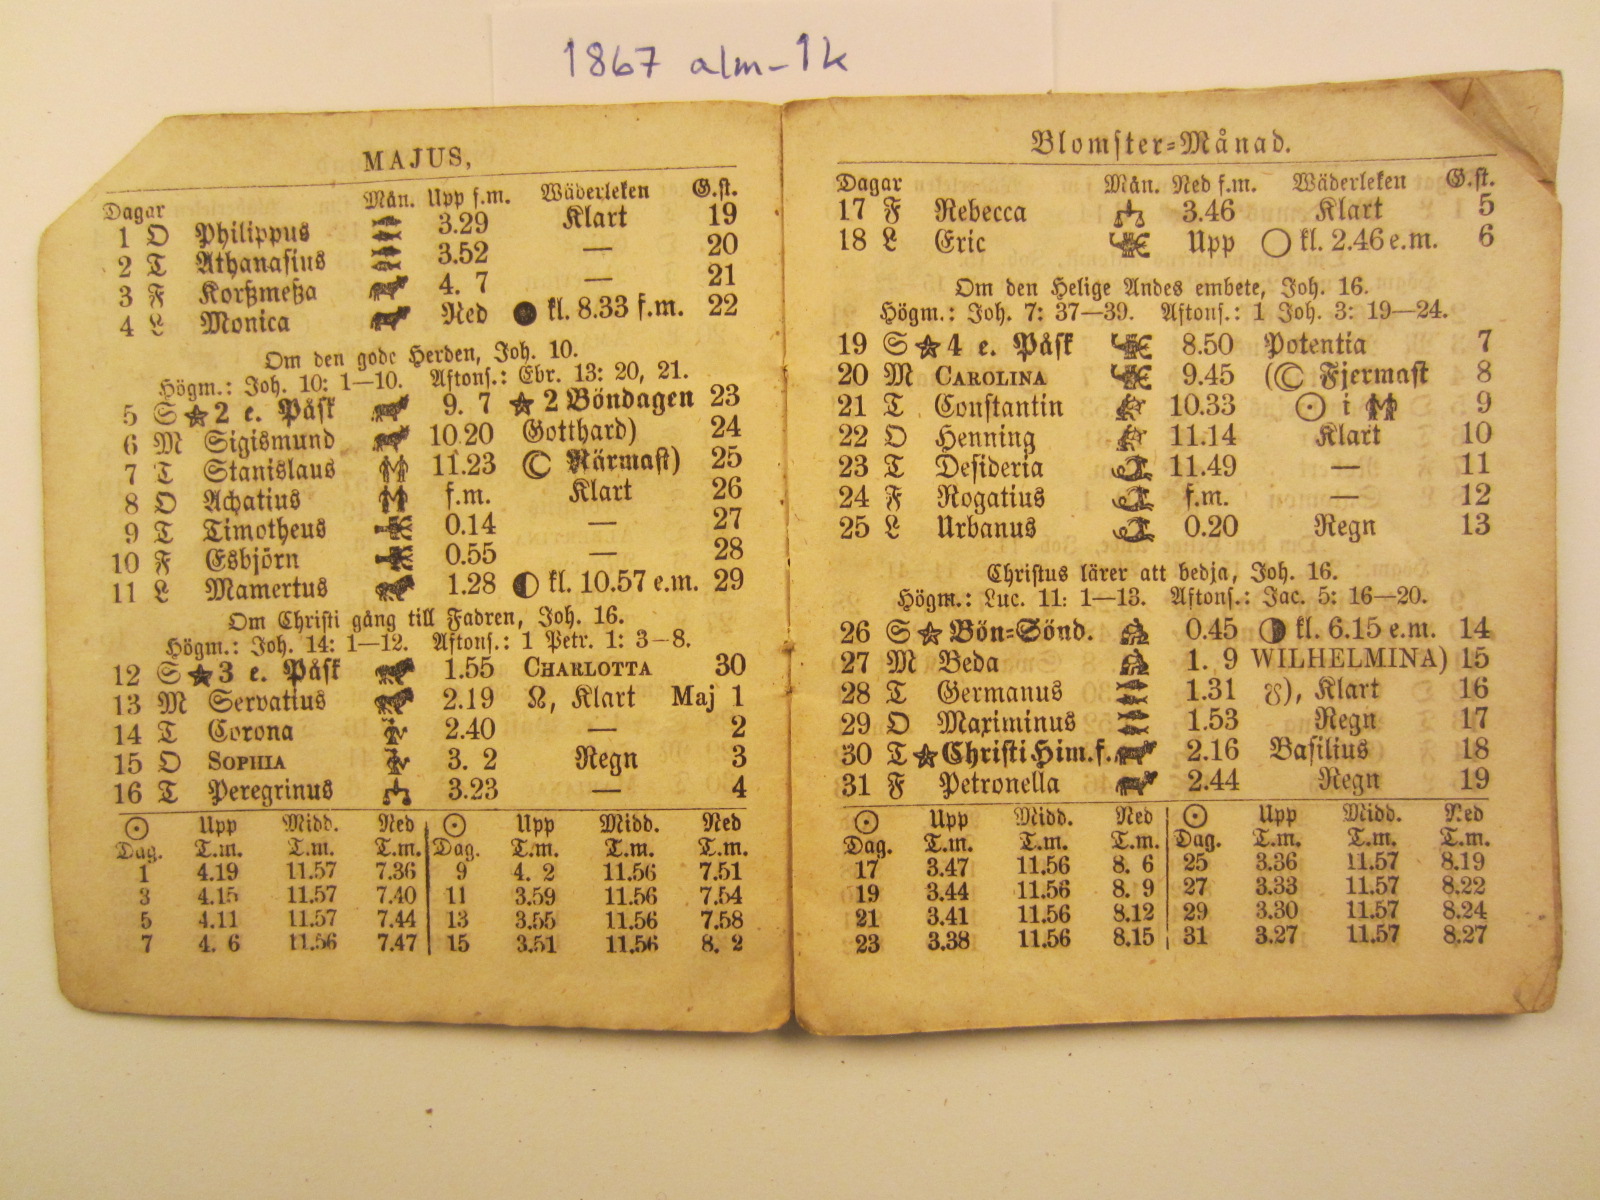 1867 alm-1k
MAJUS,
Dagar Mån. Upp f.m. Wäderleken G.st.
1 O Philippus 3.29 Klart 19
2 T Athanasius 3.52 — 20
3 F Korßmeßa 4. 7 — 21
4 L Monica Ned ● kl. 8.33 f.m. 22
Om den gode Herden, Joh. 10.
Högm.: Joh. 10: 1—10. Aftons.: Ebr. 13: 20, 21.
5 S ★ 2 e. Påsk 9. 7 ★ 2 Böndagen 23
6 M Sigismund 10.20 Gotthard) 24
7 T Stanislaus 11.23 ☾ Närmast) 25
8 O Achatius f.m. Klart 26
9 T Timotheus 0.14 — 27
10 F Esbjörn 0.55 — 28
11 L Mamertus 1.28 ◐ kl. 10.57 e.m. 29
Om Christi gång till Fadren, Joh. 16.
Högm.: Joh. 14: 1—12. Aftons.: 1 Petr. 1: 3—8.
12 S ★ 3 e. Påsk 1.55 CHARLOTTA 30
13 M Servatius 2.19 ☊, Klart Maj 1
14 T Corona 2.40 — 2
15 O SOPHIA 3. 2 Regn 3
16 T Peregrinus 3.23 — 4
☉ Upp Midd. Ned ☉ Upp Midd. Ned
Dag. T.m. T.m. T.m. Dag. T.m. T.m. T.m.
1 4.19 11.57 7.36 9 4. 2 11.56 7.51
3 4.15 11.57 7.40 11 3.59 11.56 7.54
5 4.11 11.57 7.44 13 3.55 11.56 7.58
7 4. 6 11.56 7.47 15 3.51 11.56 8. 2
Blomster=Månad.
Dagar Mån. Ned f.m. Wäderleken G.st.
17 F Rebecca 3.46 Klart 5
18 L Eric Upp ○ kl. 2.46 e.m. 6
Om den Helige Andes embete, Joh. 16.
Högm.: Joh. 7: 37—39. Aftons.: 1 Joh. 3: 19—24.
19 S ★ 4 e. Påsk 8.50 Potentia 7
20 M CAROLINA 9.45 (☾ Fjermast 8
21 T Constantin 10.33 ☉ i ♊ 9
22 O Henning 11.14 Klart 10
23 T Desideria 11.49 — 11
24 F Rogatius f.m. — 12
25 L Urbanus 0.20 Regn 13
Christus lärer att bedja, Joh. 16.
Högm.: Luc. 11: 1—13. Aftons.: Jac. 5: 16—20.
26 S ★ Bön=Sönd. 0.45 ◑ kl. 6.15 e.m. 14
27 M Beda 1. 9 WILHELMINA) 15
28 T Germanus 1.31 ☋), Klart 16
29 O Maximinus 1.53 Regn 17
30 T ★ Christi Him.f. 2.16 Basilius 18
31 F Petronella 2.44 Regn 19
☉ Upp Midd. Ned ☉ Upp Midd. Ned
Dag. T.m. T.m. T.m. Dag. T.m. T.m. T.m.
17 3.47 11.56 8. 6 25 3.36 11.57 8.19
19 3.44 11.56 8. 9 27 3.33 11.57 8.22
21 3.41 11.56 8.12 29 3.30 11.57 8.24
23 3.38 11.56 8.15 31 3.27 11.57 8.27